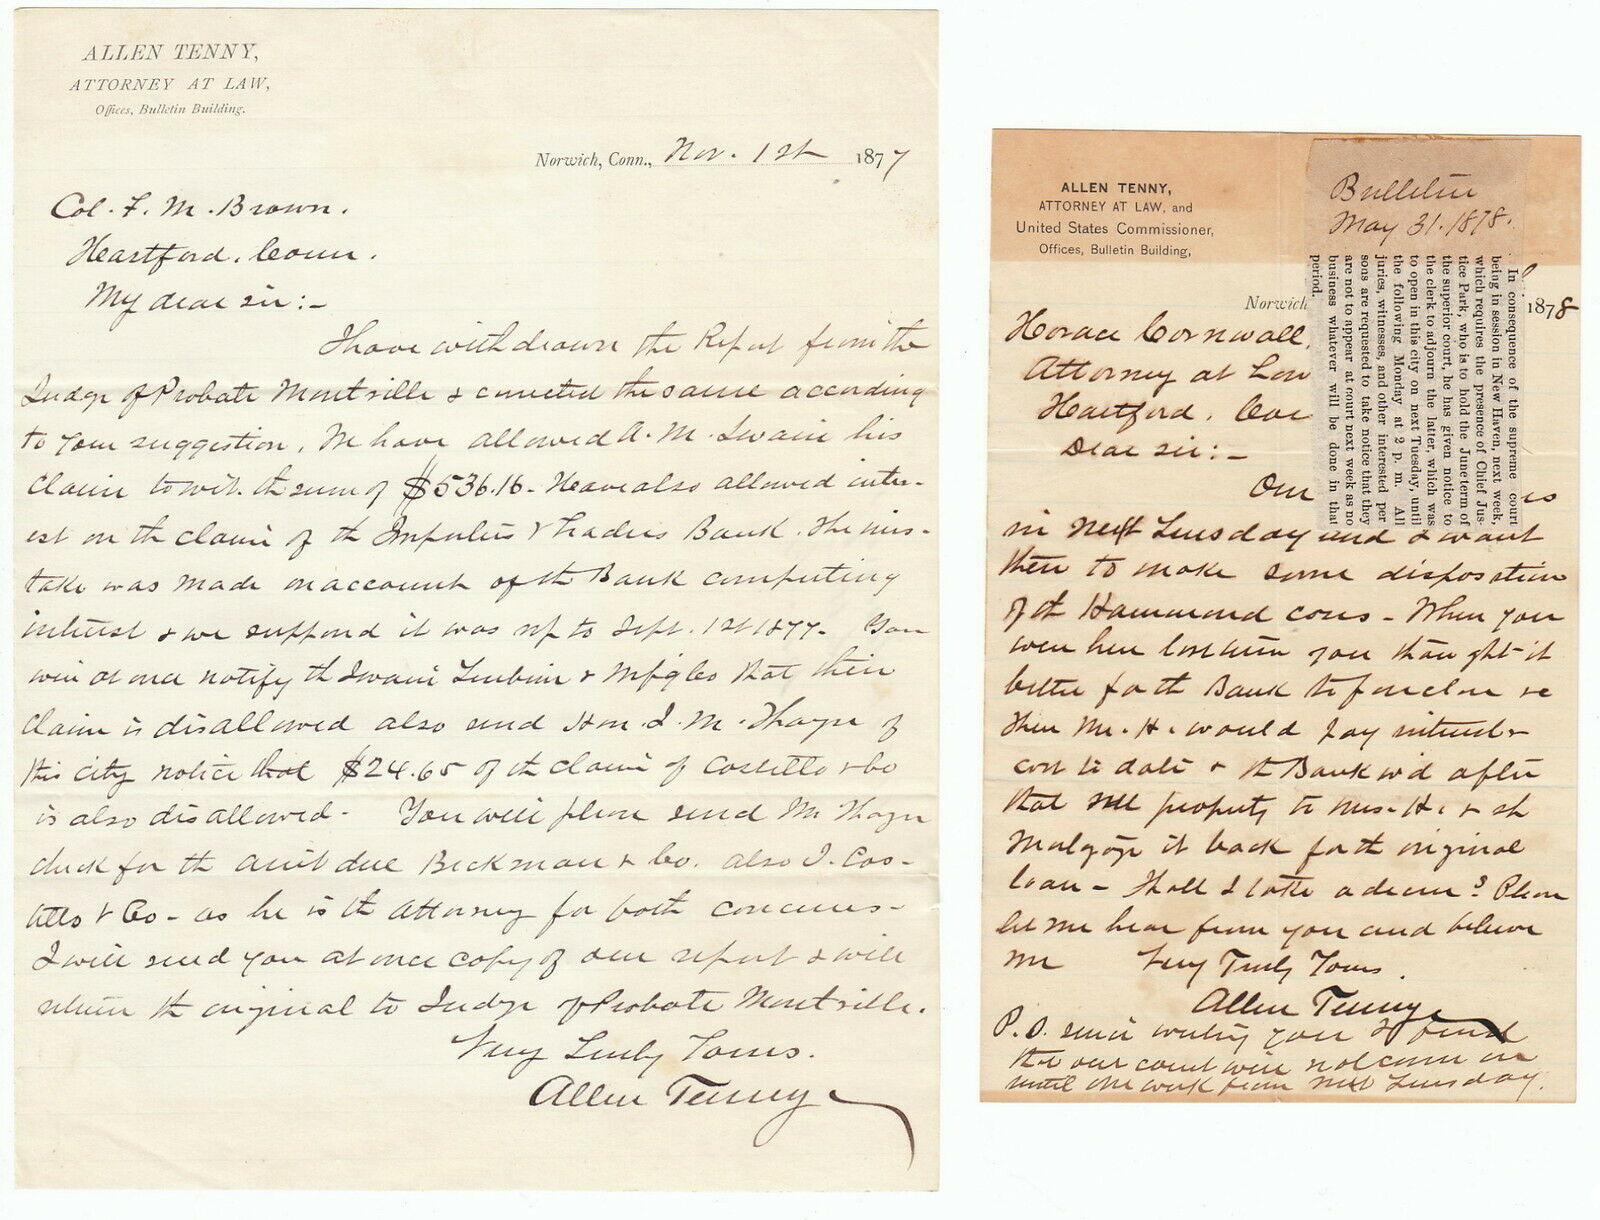 ALLEN TENNY,
ATTORNEY AT LAW,
Offices, Bulletin Building.
Norwich, Conn., Nov. 1st 1877
Col. F. M. Brown.
Heartford. Conn.
My dear sir:-
I have withdrawn the Report from the
Judge of Probate Montville & corrected the same according
to your suggestion. We have allowed A. M. Swain his
claim to wit. the sum of $536.16- Have also allowed inter-
est on the claim of the Importers & Traders Bank. The mis-
take was made on account of the Bank computing
interest & we supposed it was up to Sept. 1st 1877- You
will at once notify the Swain Turbine & Mfg Co that their
claim is disallowed also send Hon. J. M. Thayer of
this city notice that $24.65 of the claim of Costello & Co
is also disallowed- You will please send Mr Thayer
check for the am't due Beckman & Co. also J. Cos-
tello & Co- as he is the attorney for both concerns-
I will send you at once copy of our report & will
return the original to Judge of Probate Montville.
Very Truly Yours.
Allen Tenny
ALLEN TENNY,
ATTORNEY AT LAW, and
United States Commissioner,
Offices, Bulletin Building,
Norwich 1878
Bulletin
May 31. 1878.
In consequence of the supreme court
being in session in New Haven, next week,
which requires the presence of Chief Jus-
tice Park, who is to hold the June term of
the superior court, he has given notice to
the clerk to adjourn the latter, which was
to open in this city on next Tuesday, until
the following Monday at 2 p. m. All
juries, witnesses, and other interested per
sons are requested to take notice that they
are not to appear at court next week as no
business whatever will be done in that
period.
Horace Cornwall,
Attorney at Law
Hartford. Con
Dear sir:-
Our is
in next Tuesday and I want
then to make some disposition
of the Hammond cases- When you
were here last you thought it
better for the Bank to foreclose &
then Mr. H. would pay interest &
cost to date & the Bank wd after
that sell property to Mrs. H. & sh
Mortgage it back for the original
loan- Shall I take a decree? Please
let me hear from you and believe
me Very Truly Yours.
Allen Tenny
P.S. since writing you I find
that our court will not come on
until one week from next Tuesday.